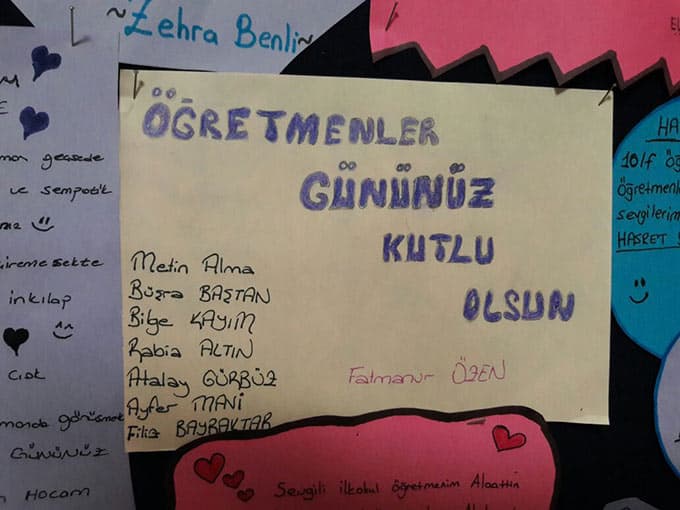 ~Zehra Benli~
ÖĞRETMENLER
GÜNÜNÜZ
KUTLU
OLSUN
Metin Alma
Büşra BAŞTAN
Bilge KAYIM
Rabia ALTIN
Atalay GÜRBÜZ
Ayfer MANİ
Filiz BAYRAKTAR
Fatmanur ÖZEN
ve sempatik
inkılap
GÜNÜNÜZ
Hocam
HA
10/f öğ
öğretmenl
sevgilerim
HASRET
Sevgili ilkokul öğretmenim Alaattin